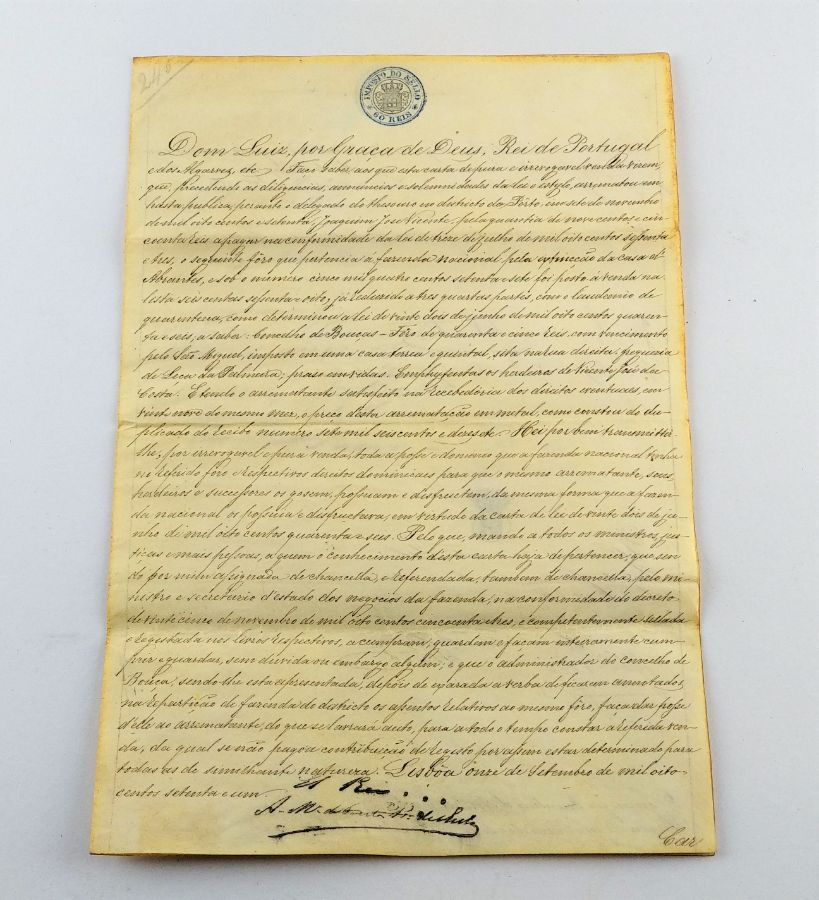 248
IMPOSTO DO SELLO
60 REIS
Dom Luiz, por Graça de Deus, Rei de Portugal
e dos Algarves, etc. Faço saber, aos que esta carta de pura e irrevogavel venda virem,
que, precedendo as diligencias, annuncios e solemnidades da lei e estylo, arrematou em
hasta publica, perante o delegado do thesouro no districto do Porto, em sete de novembro
de mil oito centos e setenta, Joaquim José Vicente, pela quantia de nove centos e cin-
coenta reis a pagar na conformidade da lei de treze de julho de mil oito centos sessenta
e tres, o seguinte fôro que pertencia á fazenda nacional pela extincção da casa d'
Abrantes, e sob o numero cinco mil quatro centos setenta e sete foi posto á venda na
lista seis centos sessenta e oito, já reduzido a tres quartas partes, com o laudemio de
quarentena, como determinou a lei de vinte dois de junho de mil oito centos quaren-
ta e seis, a saber: Concelho de Bouças - Fôro de quarenta e cinco reis, com vencimento
pelo São Miguel, imposto em uma casa terrea e quintal, sita na rua direita, freguezia
de Leça da Palmeira; praso em vidas. Emphyteutas os herdeiros de Vicente José da
Costa. E tendo o arrematante satisfeito na recebedoria dos direitos eventuaes, em
vinte nove do mesmo mez, o preço d'esta arrematação em metal, como constou do du-
plicado do recibo numero sete mil seis centos e desesete. Hei por bem transmittir-
lhe, por irrevogavel e pura venda, toda a posse e dominio que a fazenda nacional tinha
no referido fôro e respectivos direitos dominiaes para que o mesmo arrematante, seus
herdeiros e successores os gosem, possuam e disfructem, da mesma forma que a fazen-
da nacional os possuia e disfructava, em virtude da carta de lei de vinte dois de ju-
nho de mil oito centos quarenta e seis. Pelo que, mando a todos os ministros, jus-
tiças e mais pessoas, a quem o conhecimento d'esta carta haja de pertencer, que sen-
do por mim assignada de chancella, e referendada, tambem de chancella, pelo mi-
nistro e secretario d'estado dos negocios da fazenda, na conformidade do decreto
de vinte cinco de novembro de mil oito centos cincoenta e tres, e competentemente sellada
e registada nos livros respectivos, a cumpram, guardem e façam inteiramente cum-
prir e guardar, sem duvida ou embargo algum; e que o administrador do concelho de
Bouças, sendo-lhe esta apresentada, depois de exarada a verba de ficarem annotados
na repartição de fazenda do districto os assentos relativos ao mesmo fôro, faça dar posse
d'elle ao arrematante, do que se lavrará auto, para a todo o tempo constar a referida ven-
da, da qual se não pagou contribuição de registo por assim estar determinado para
todas as de semelhante natureza. Lisbôa onze de Setembro de mil oito
centos setenta e um.
El Rei...
Car